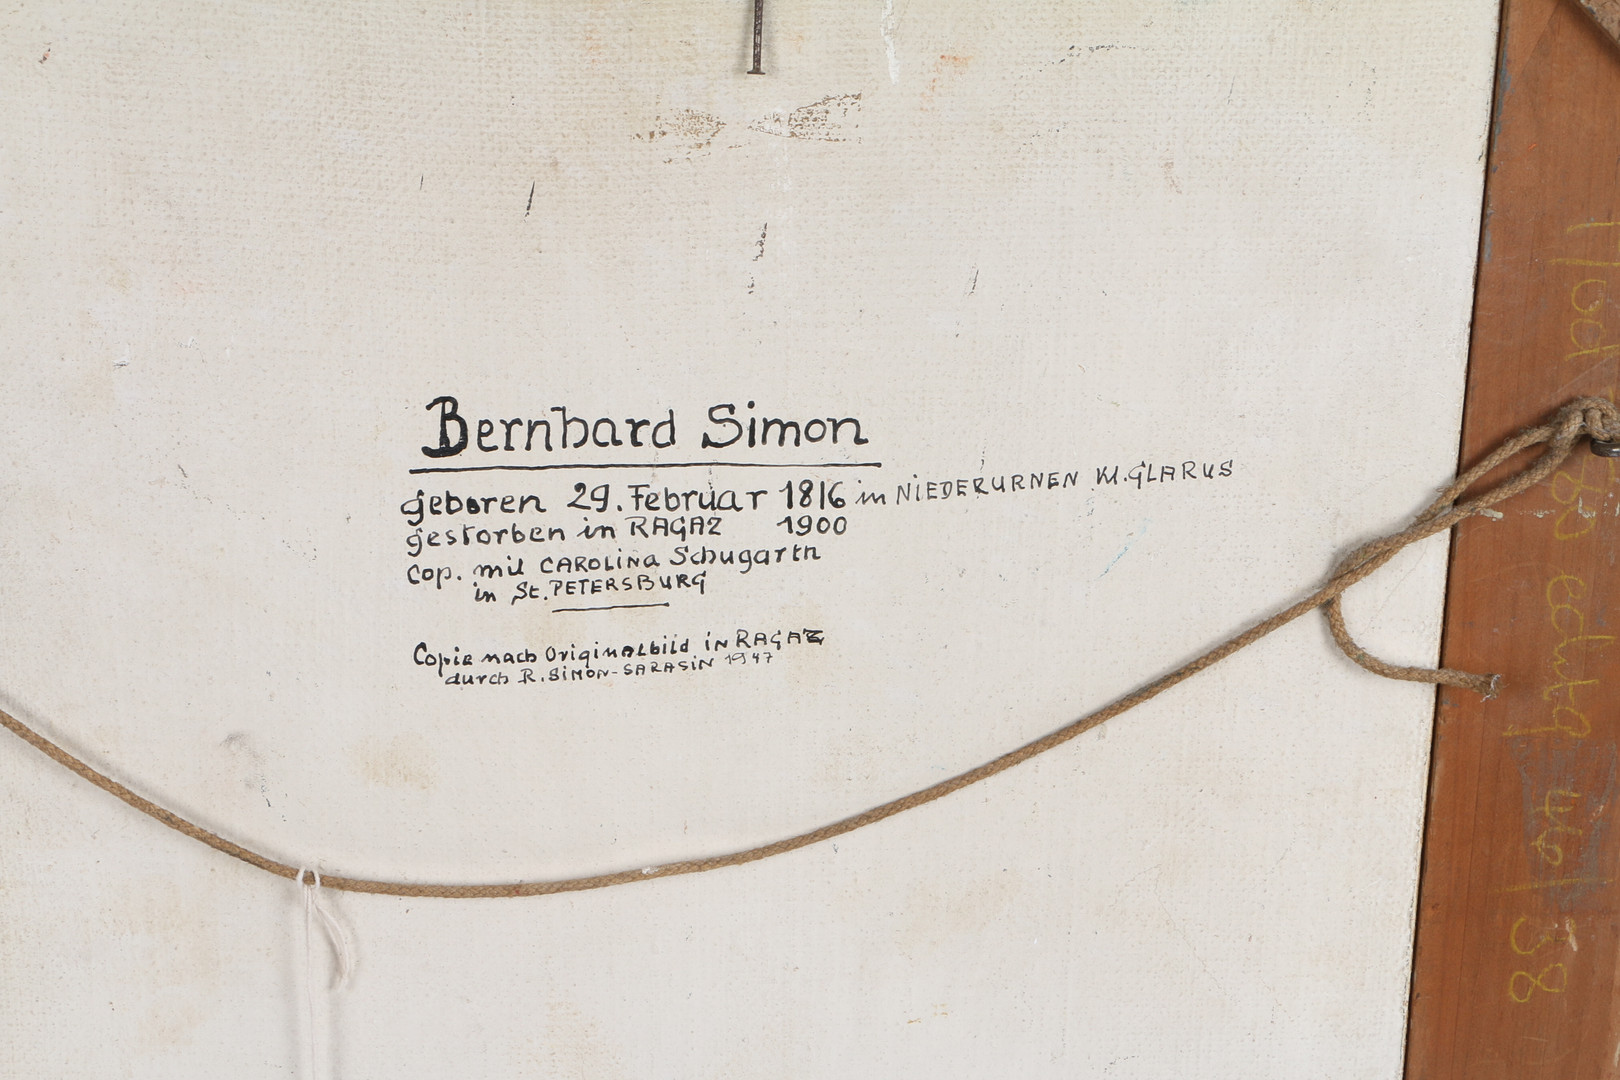 Bernhard Simon
geboren 29. Februar 1816 in NIEDERURNEN Kt. GLARUS
gestorben in RAGAZ 1900
Cop. mit CAROLINA Schugarth
in St. PETERSBURG
Copie nach Originalbild in RAGAZ
durch R. SIMON-SARASIN 1947
38